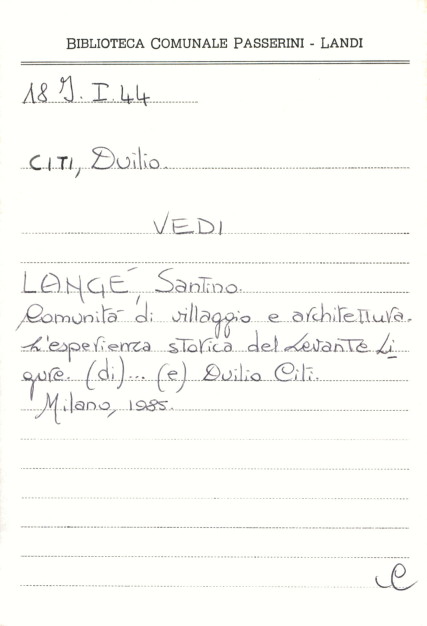 BIBLIOTECA COMUNALE PASSERINI - LANDI
18 J. I. 44
CITI, Duilio.
VEDI
LANGÉ, Santino.
Comunità di villaggio e architettura.
L'esperienza storica del Levante Li
gure. (di)... (e) Duilio Citi.
Milano, 1985.